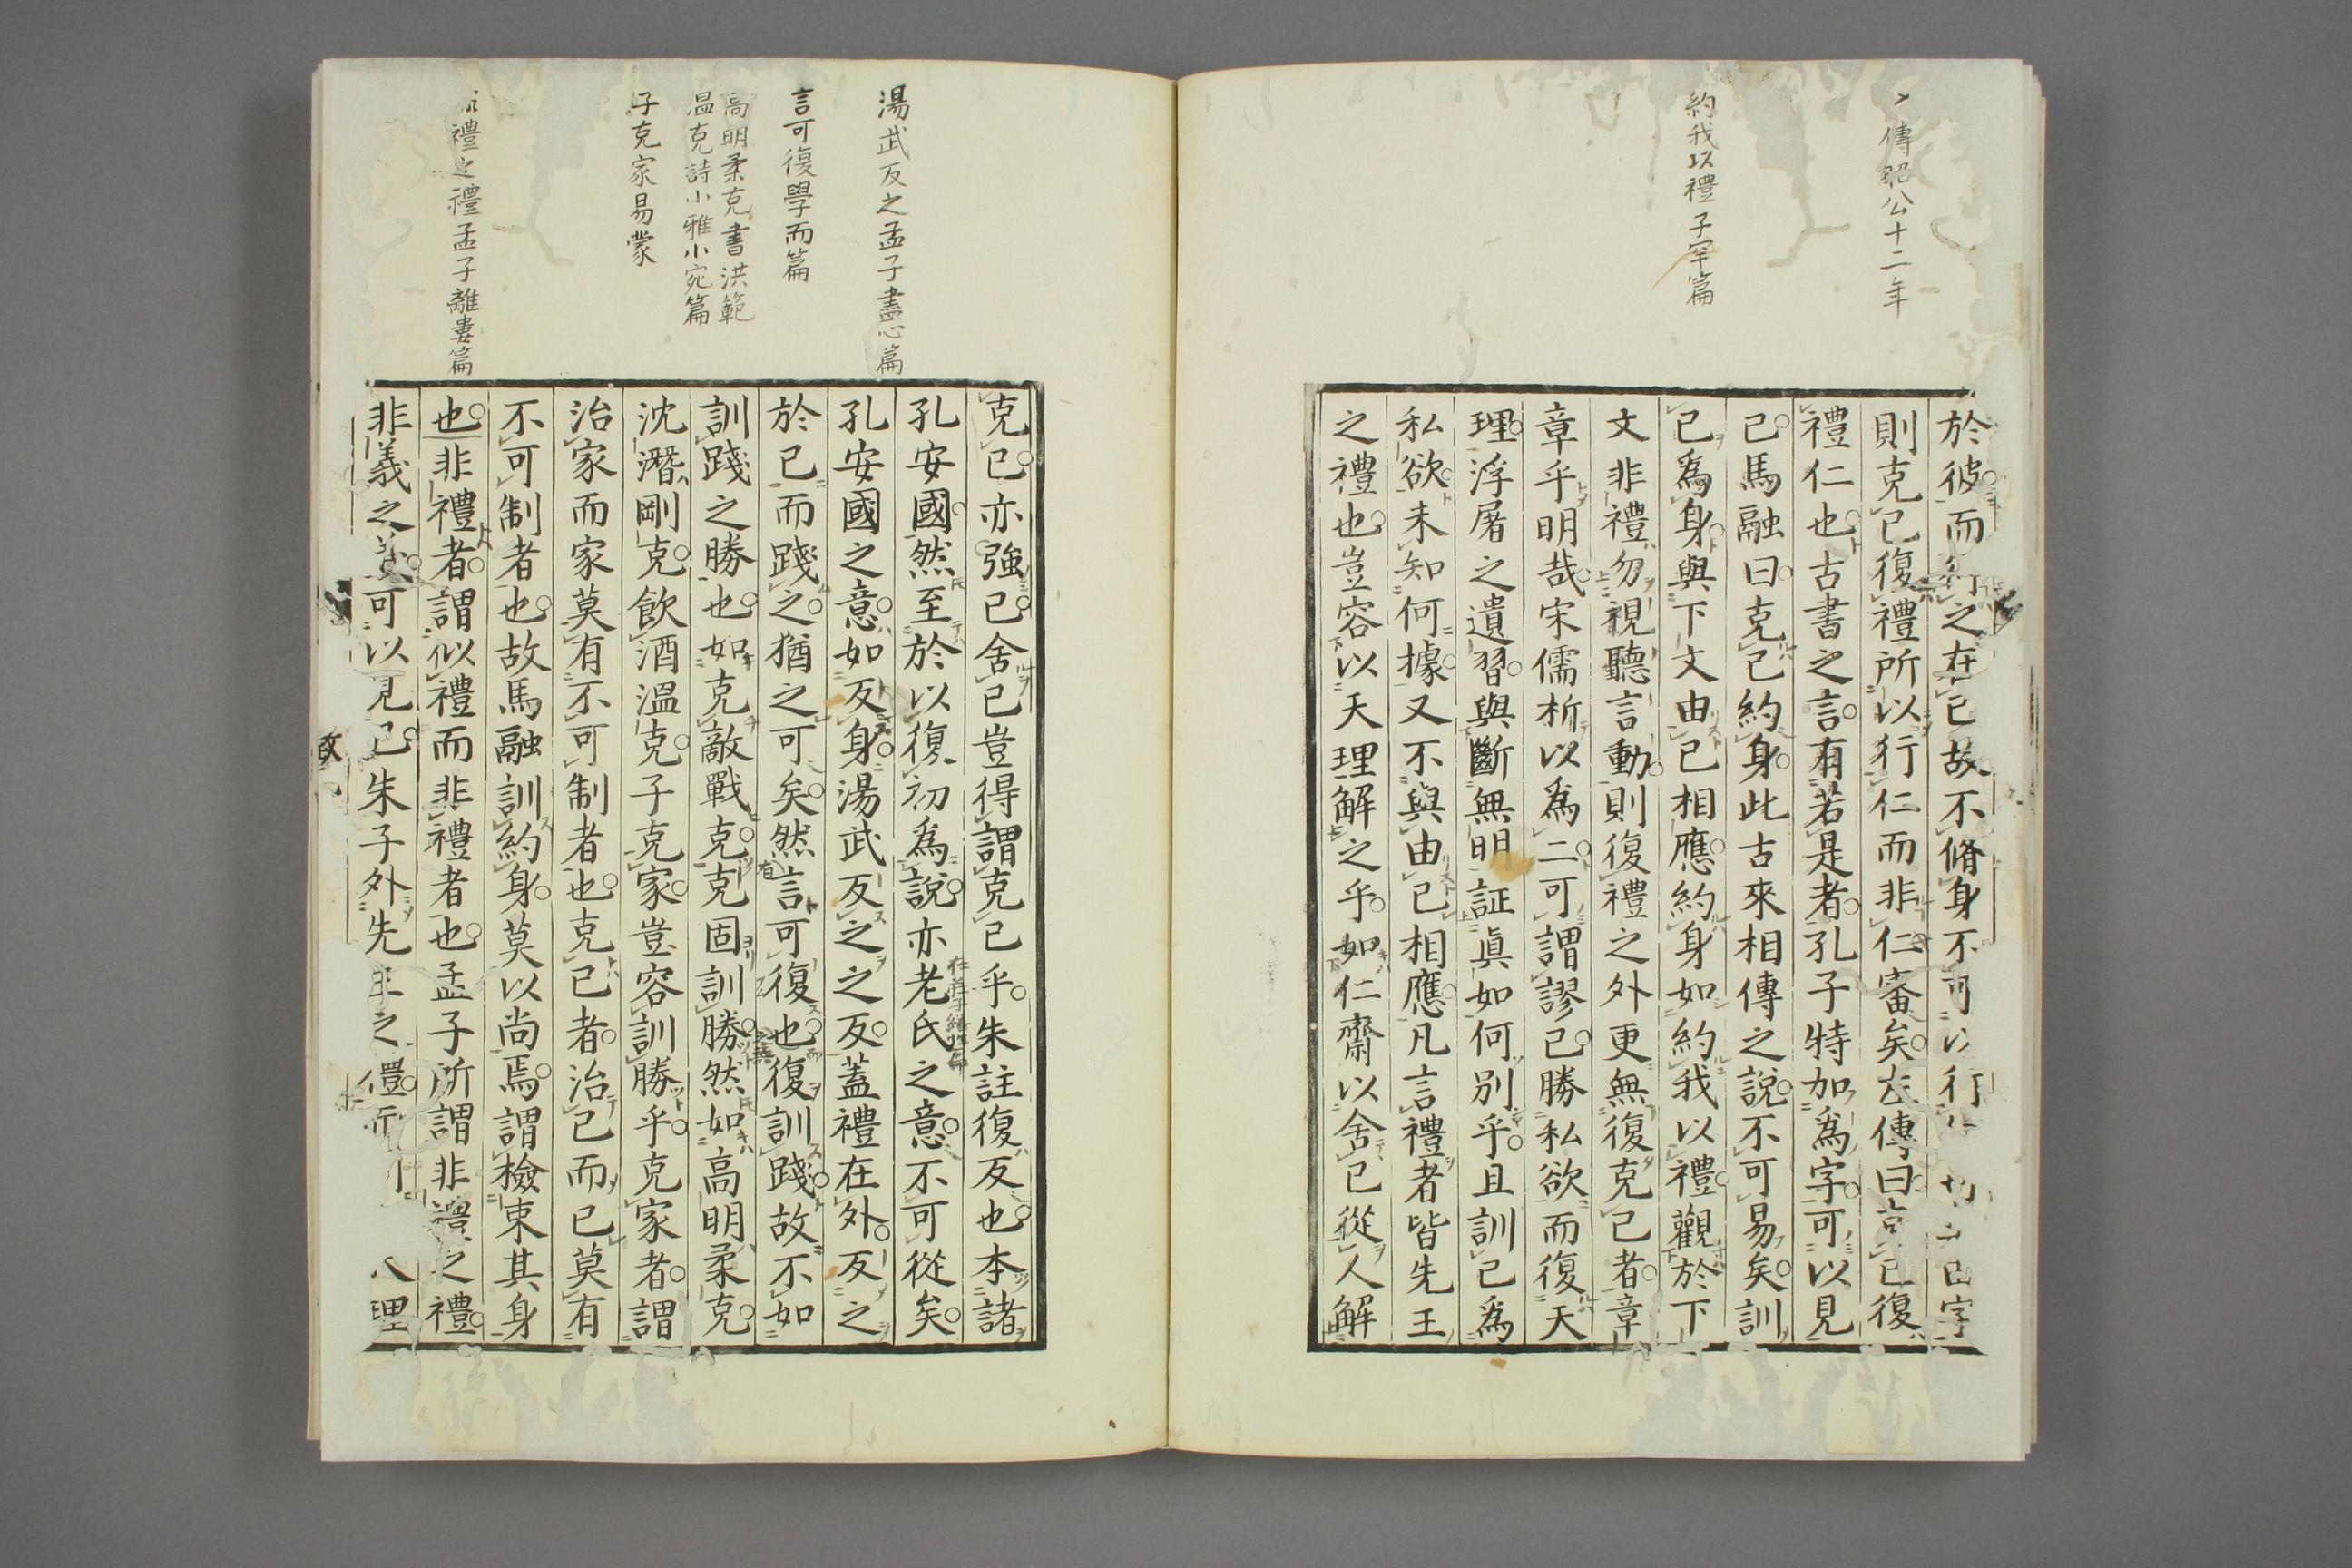 傳昭公十二年
約我以禮子罕篇
於彼而行之在已故不脩身不可以行
則克已復禮所以行仁而非仁審矣左傳曰克已復
禮仁也古書之言有若是者孔子特加爲字可以見
已馬融曰克已約身此古來相傳之說不可易矣訓
已爲身與下文由已相應約身如約我以禮觀於下
文非禮勿視聽言動則復禮之外更無復克已者章
章乎明哉宋儒析以爲二可謂謬已勝私欲而復天
理浮屠之遺習與斷無明証眞如何別乎且訓已爲
私欲未知何據又不與由已相應凡言禮者皆先王
之禮也豈容以天理解之乎如仁齋以舍已從人解
湯武反之孟子盡心篇
言可復學而篇
高明柔克書洪範
温克詩小雅小宛篇
子克家易蒙
禮之禮孟子離婁篇
克已亦強已舍已豈得謂克已乎朱註復反也本諸
孔安國然至於以復初爲說亦老氏之意不可從矣
在莊子繕性篇
孔安國之意如反身湯武反之之反蓋禮在外反之
於已而踐之猶之可矣然言可復也復訓踐故不如
訓踐之勝也如克敵戰克克固訓勝然如高明柔克
沈潛剛克飲酒溫克子克家豈容訓勝乎克家者謂
治家而家莫有不可制者也克已者治已而已莫有
不可制者也故馬融訓約身莫以尚焉謂檢束其身
也非禮者謂似禮而非禮者也孟子所謂非禮之禮
非義之義可以見已朱子外先王之禮而 理